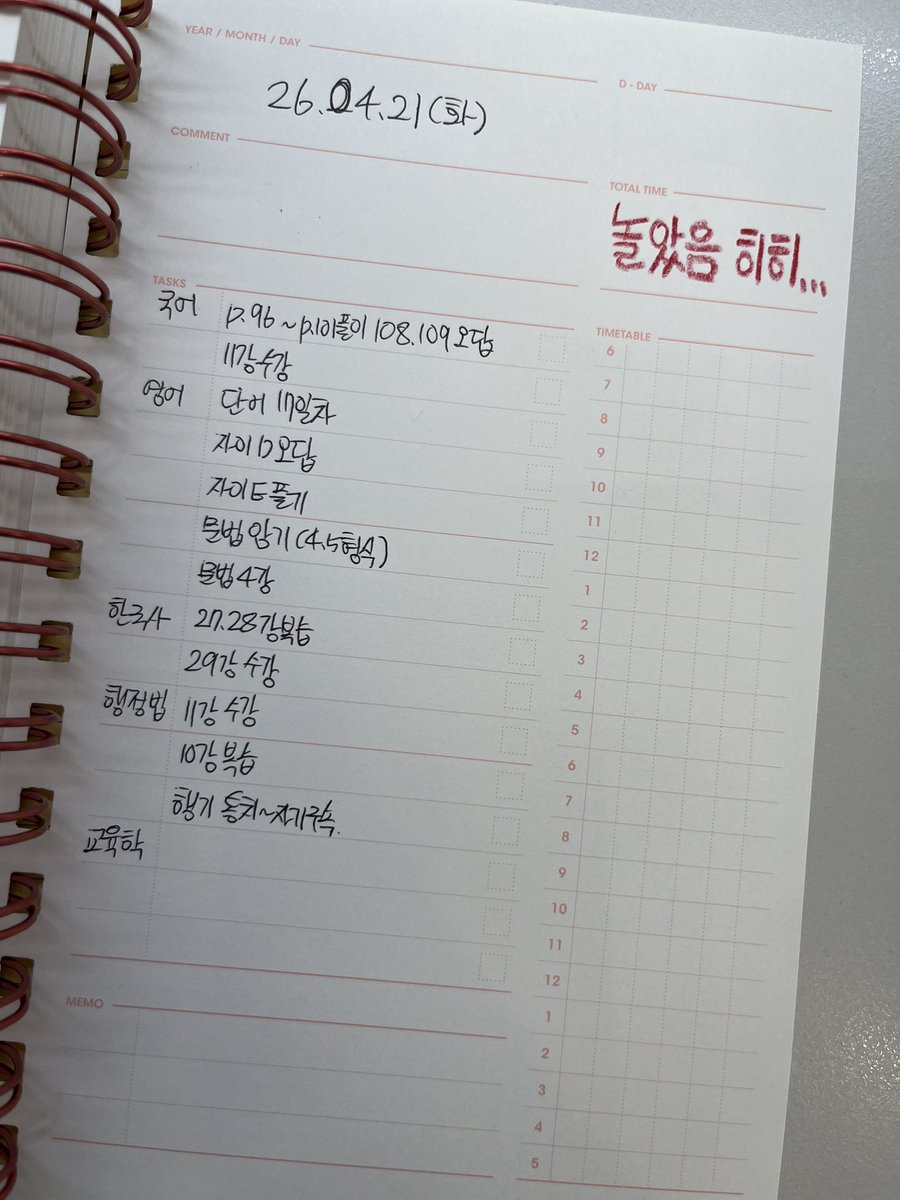 YEAR / MONTH / DAY
26.04.21(화)
D - DAY
COMMENT
TOTAL TIME
놀았음 히히...
TASKS
국어 p.96 ~ p.101풀이 108.109 오답
11강 수강
영어 단어 17일차
자이 D 오답
자이 E 풀기
문법 암기 (4.5형식)
문법 4강
한국사 27.28강 복습
29강 수강
행정법 11강 수강
10강 복습
행기
교육학
TIMETABLE
6
7
8
9
10
11
12
1
2
3
4
5
6
7
8
9
10
11
12
1
2
3
4
5
MEMO